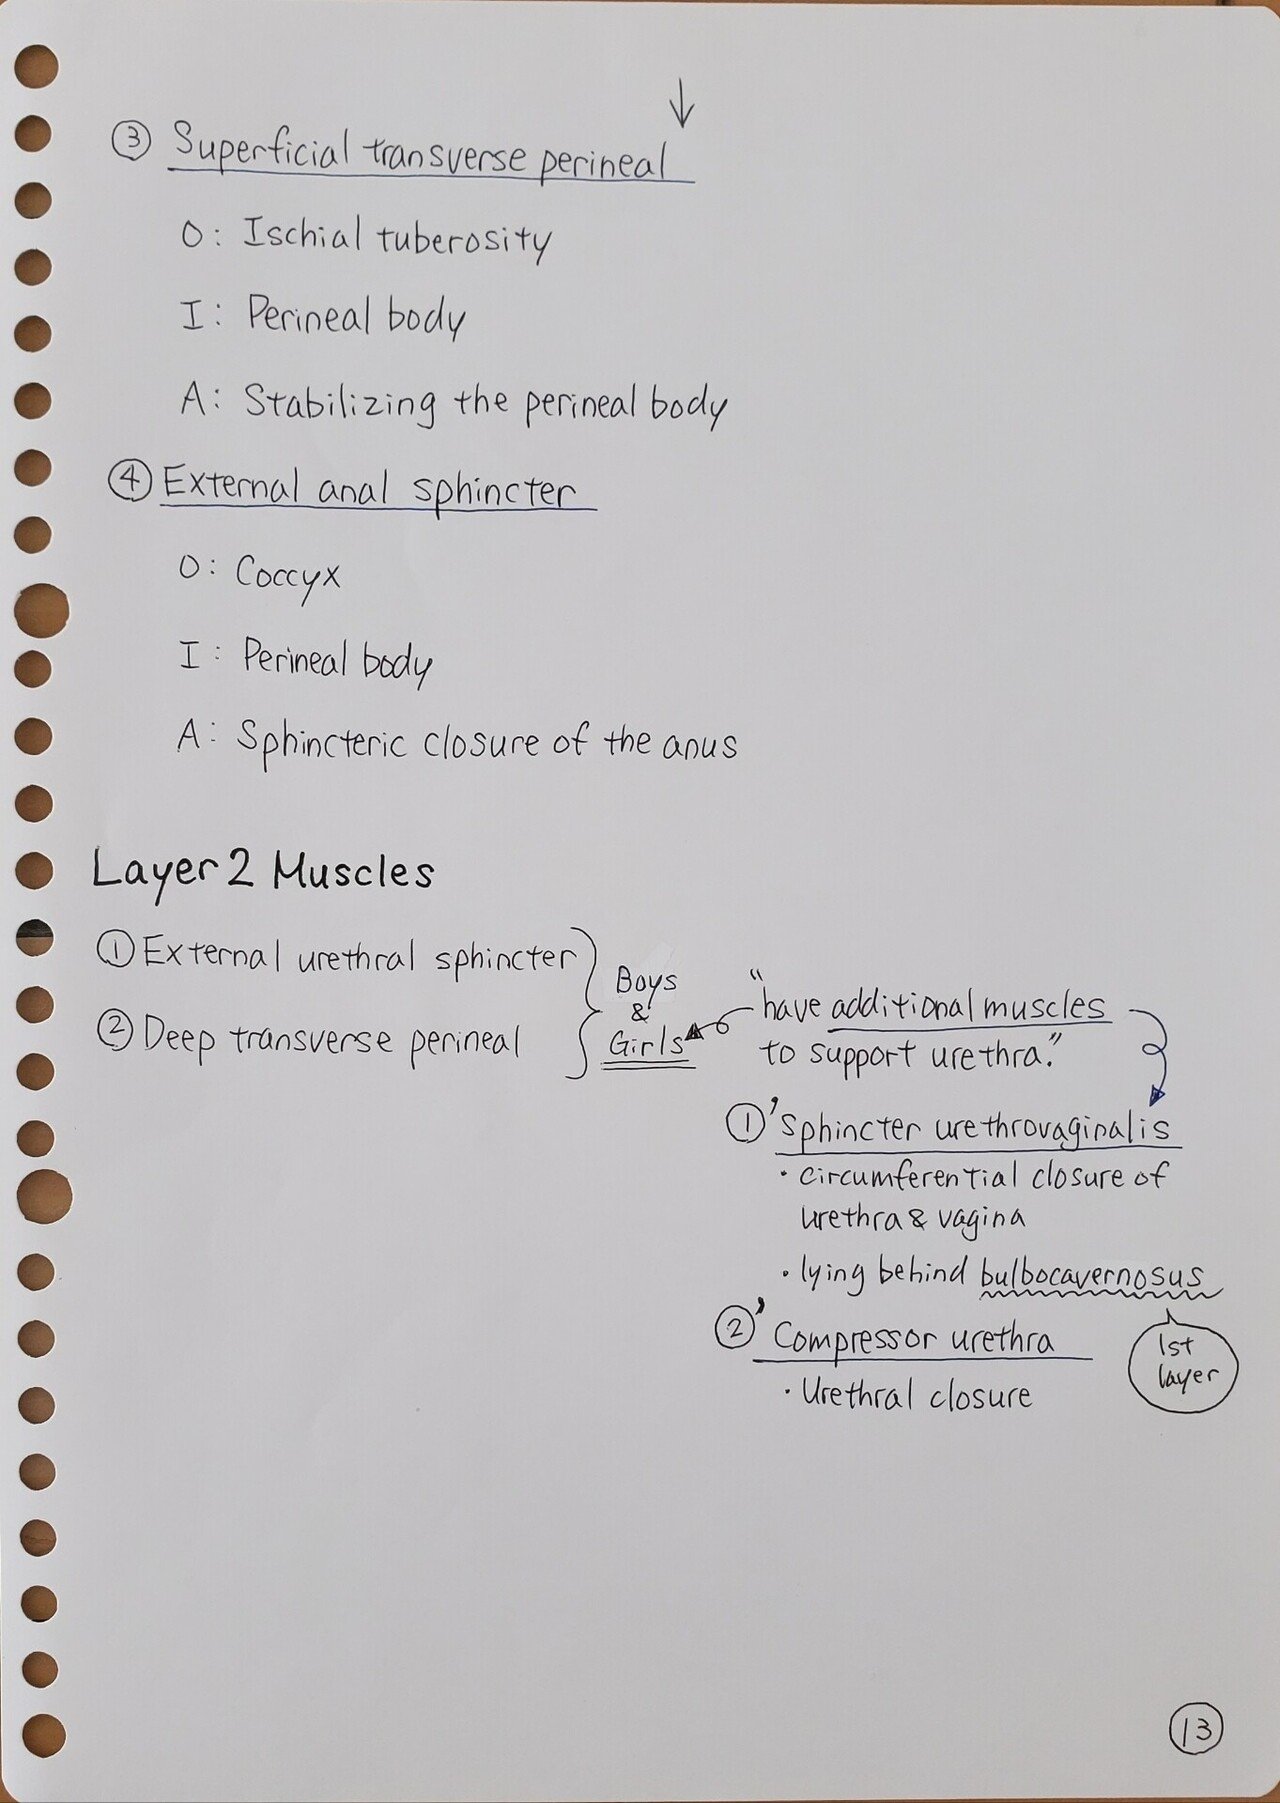 ↓
③ Superficial transverse perineal
O: Ischial tuberosity
I: Perineal body
A: Stabilizing the perineal body
④ External anal sphincter
O: Coccyx
I: Perineal body
A: Sphincteric closure of the anus
Layer 2 Muscles
① External urethral sphincter
② Deep transverse perineal
Boys
&
Girls
"have additional muscles
to support urethra."
①' Sphincter urethrovaginalis
· circumferential closure of
urethra & vagina
· lying behind bulbocavernosus
1st
layer
②' Compressor urethra
· Urethral closure
⑬